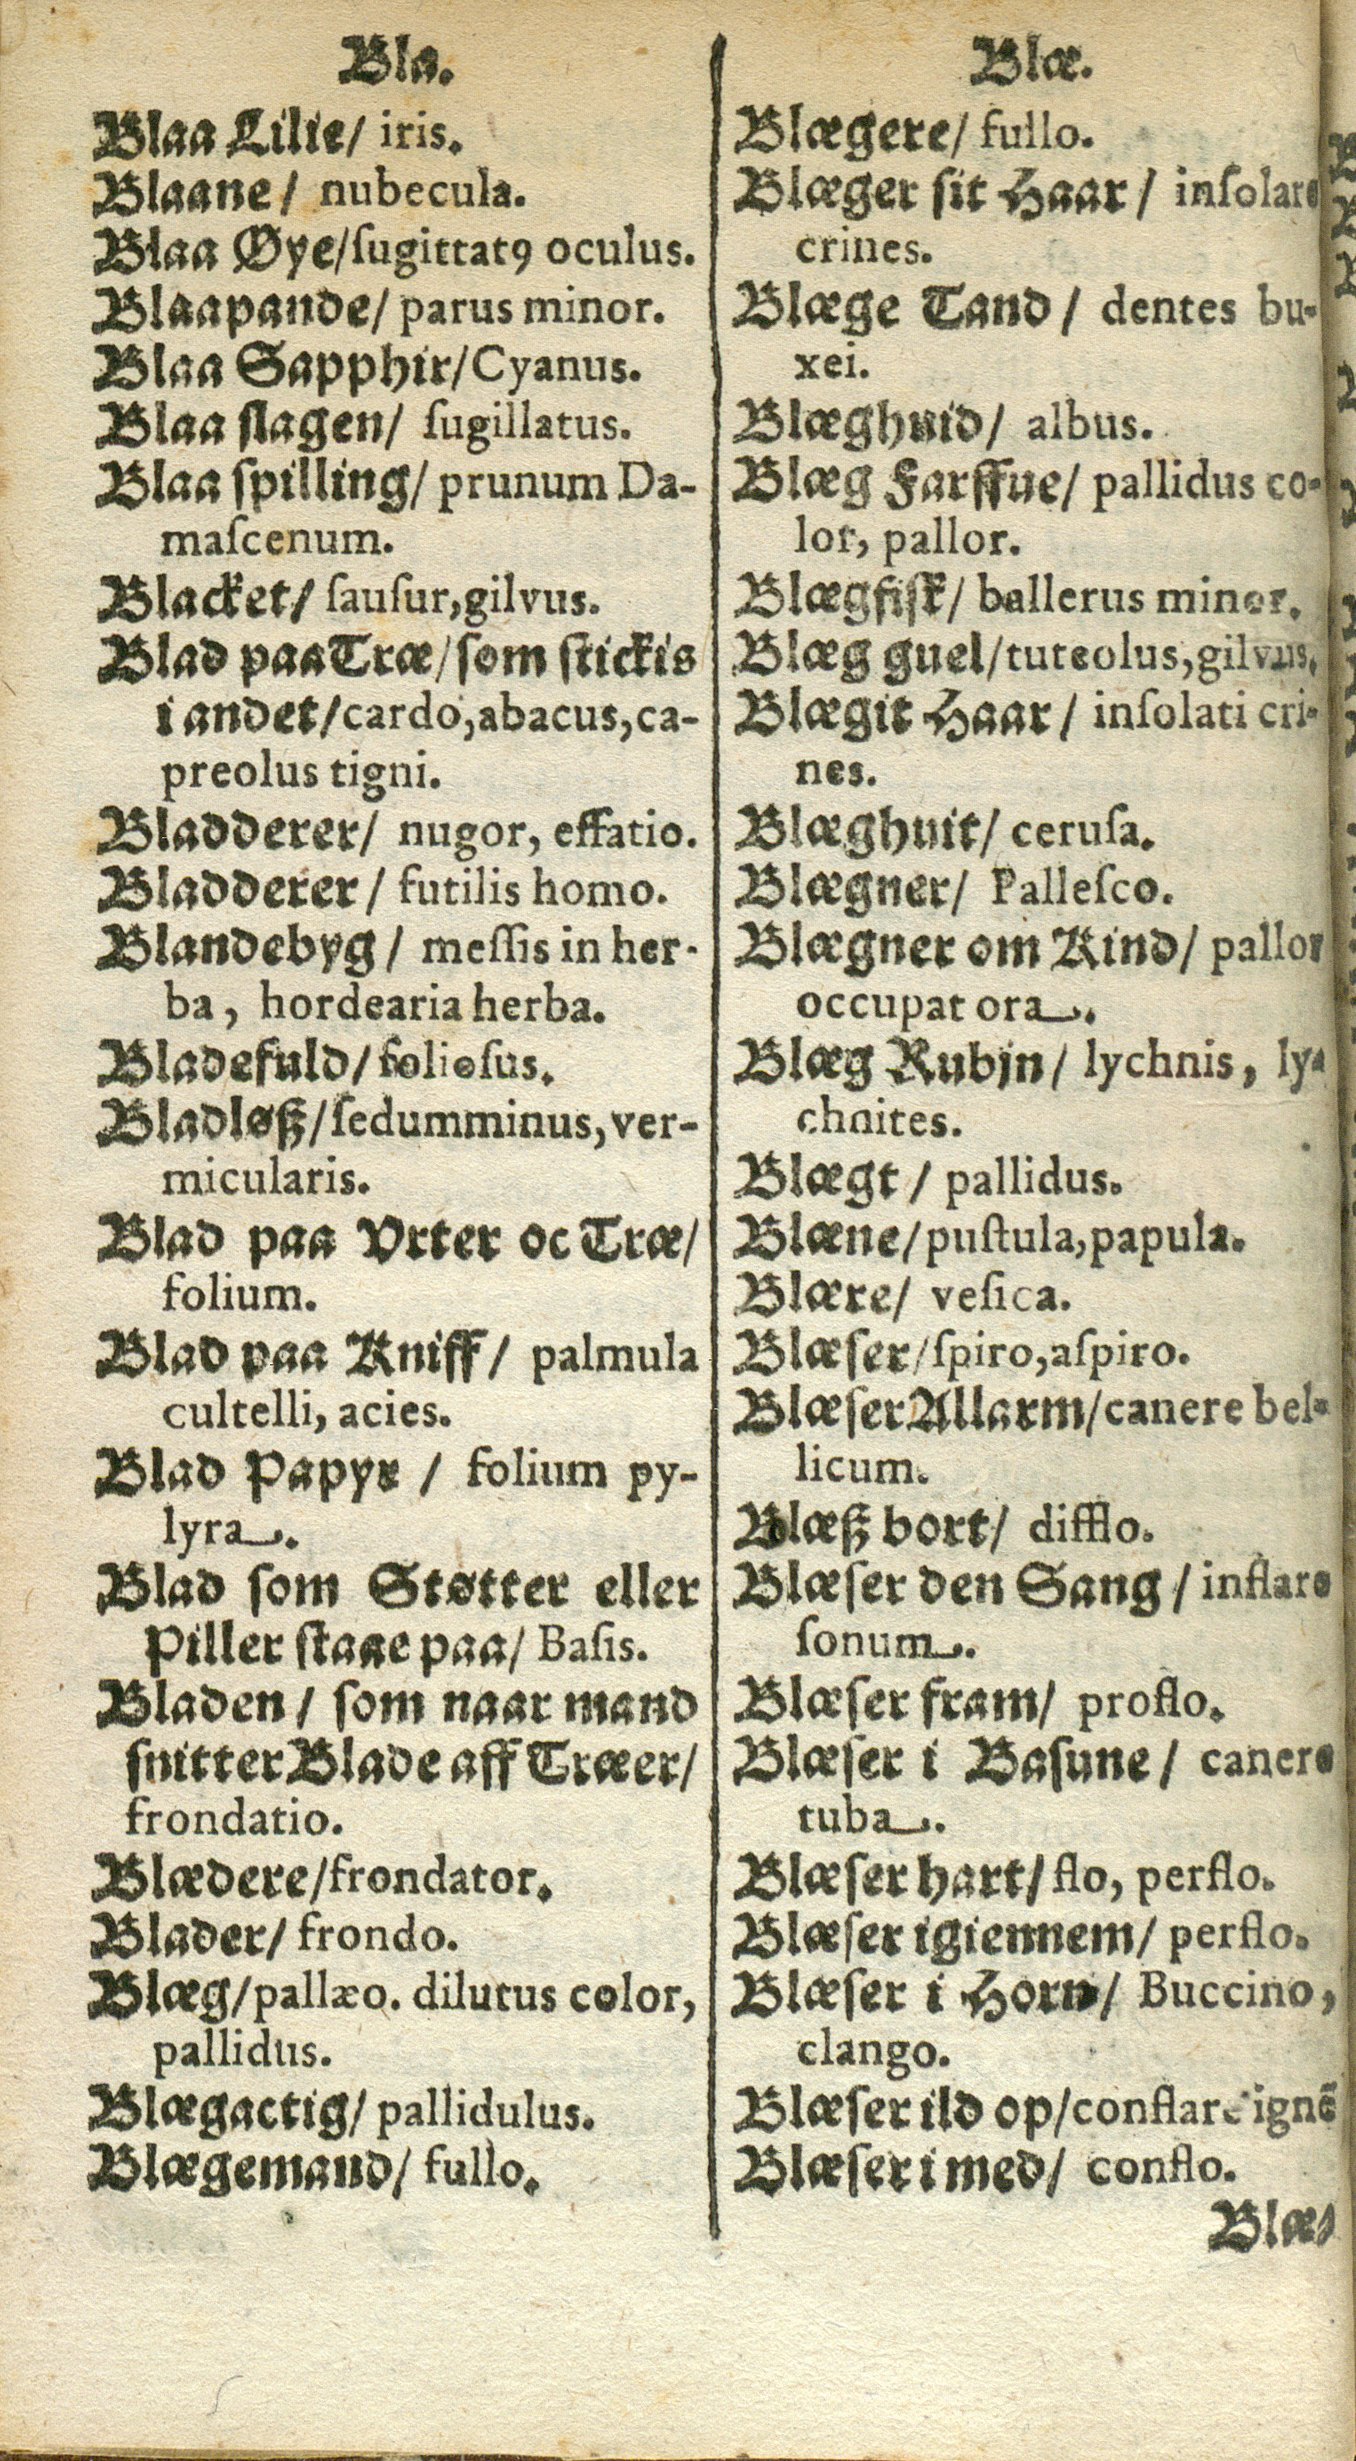 Bla.
Blaa Lilie/ iris.
Blaane/ nubecula.
Blaa Øye/ſugittatꝰ oculus.
Blaapande/ parus minor.
Blaa Sapphir/Cyanus.
Blaa ſlagen/ ſugillatus.
Blaa ſpilling/ prunum Da-
maſcenum.
Blacket/ ſauſur,gilvus.
Blad paa Træ/ſom ſtickis
i andet/cardo,abacus,ca-
preolus tigni.
Bladderer/ nugor, effatio.
Bladderer/ futilis homo.
Blandebyg/ meſſis in her-
ba, hordearia herba.
Bladefuld/folioſus.
Bladløß/ſedumminus,ver-
micularis.
Blad paa Vrter oc Træ/
folium.
Blad paa Kniff/ palmula
cultelli, acies.
Blad Papyr/ folium py-
lyra.
Blad ſom Støtter eller
Piller ſtaae paa/ Baſis.
Bladen/ ſom naar mand
ſnitter Blade aff Træer/
frondatio.
Blædere/frondator.
Blader/ frondo.
Blæg/pallæo. dilutus color,
pallidus.
Blægactig/ pallidulus.
Blægemand/ fullo.
Blæ.
Blægere/ fullo.
Blæger ſit Haar/ inſolare
crines.
Blæge Tand/ dentes bu-
xei.
Blæghuid/ albus.
Blæg Farffue/ pallidus co-
lor, pallor.
Blægfiſk/ ballerus minor.
Blæg guel/tuteolus,gilvus.
Blægit Haar/ inſolati cri-
nes.
Blæghuit/ ceruſa.
Blægner/ Palleſco.
Blægner om Kind/ pallor
occupat ora.
Blæg Rubin/ lychnis, ly-
chnites.
Blægt/ pallidus.
Blæne/puſtula,papula.
Blære/ veſica.
Blæſer/ſpiro,aſpiro.
Blæſer Allarm/canere bel-
licum.
Blæß bort/ difflo.
Blæſer den Sang/ inflare
ſonum.
Blæſer fram/ proflo.
Blæſer i Baſune/ canere
tuba.
Blæſer hart/ flo, perflo.
Blæſer igiennem/ perflo.
Blæſer i Horn/ Buccino,
clango.
Blæſer ild op/conflare ignē
Blæſer i med/ conflo.
Blæ-